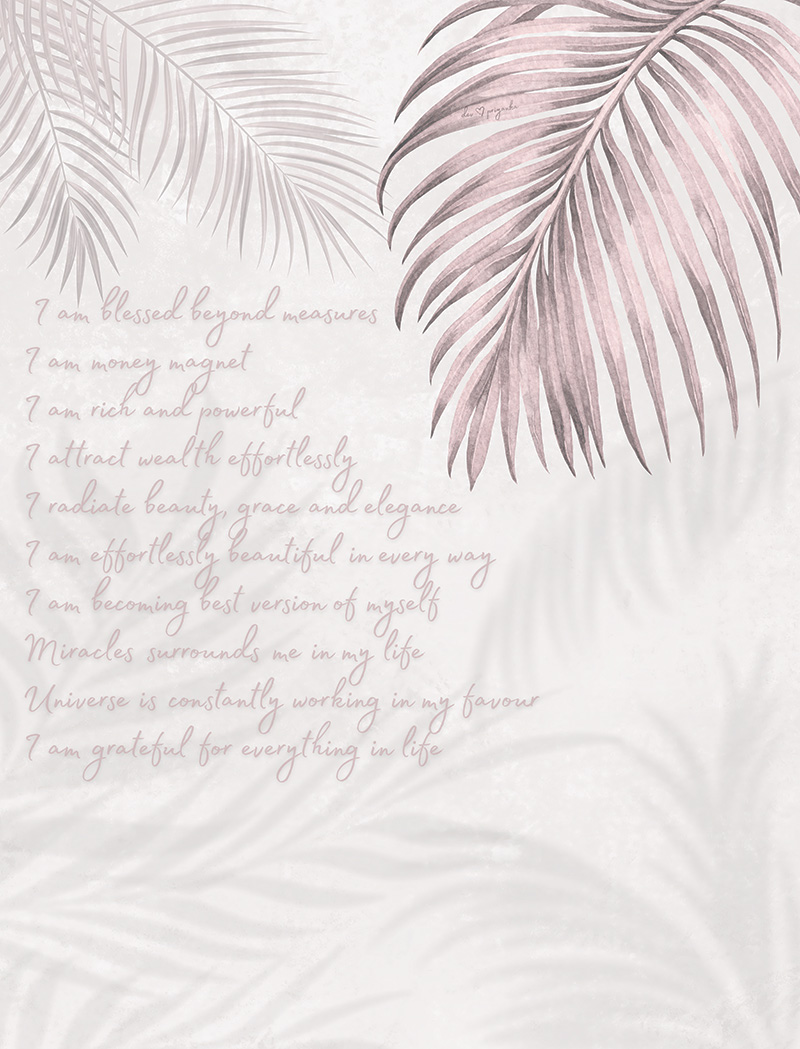 dev ♡ priyanka
I am blessed beyond measures
I am money magnet
I am rich and powerful
I attract wealth effortlessly
I radiate beauty, grace and elegance
I am effortlessly beautiful in every way
I am becoming best version of myself
Miracles surrounds me in my life
Universe is constantly working in my favour
I am grateful for everything in life